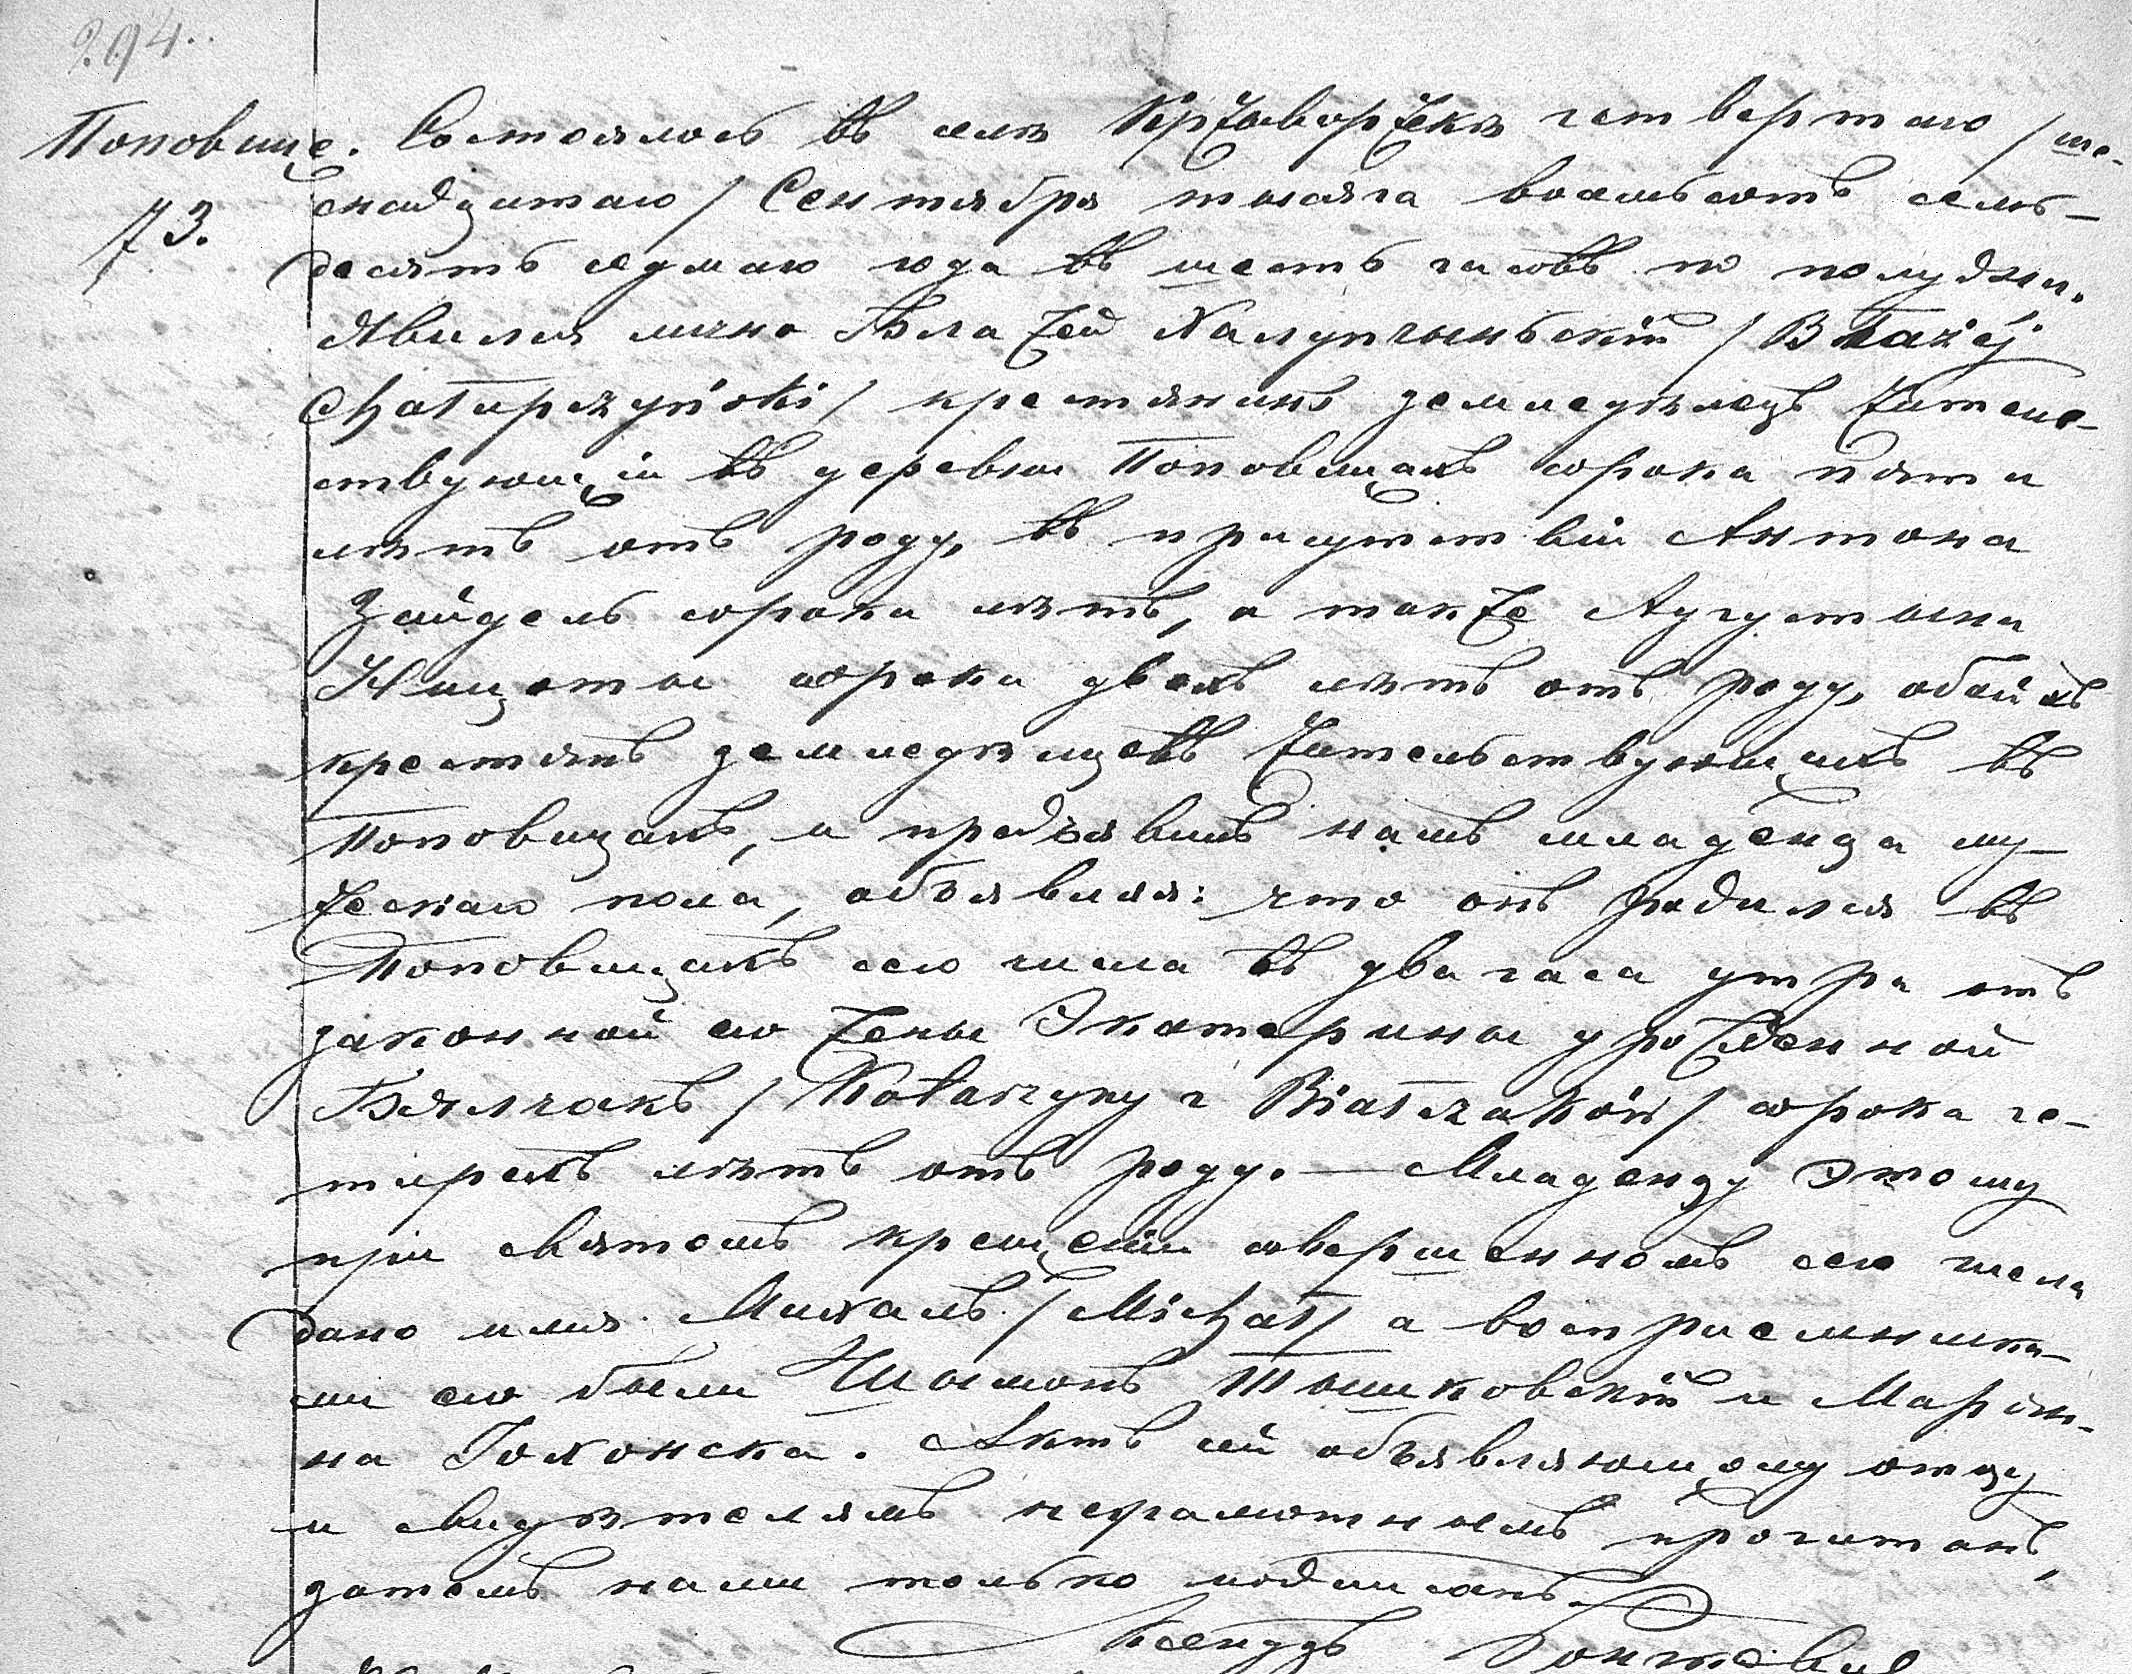 294.
Поповице. Состоялось въ селѣ Кржыворжекѣ четвертаго /ше-
73. снадцатаго/ Сентября тысяча восемьсотъ семь-
десятъ седмаго года въ шесть часовъ по полудни.
Явился лично Блажей Халупчыньскій /Błażéj
Chałupczyński/ крестянинъ земледѣлецъ жителс-
твующій въ деревни Поповицахъ сорока пяти
лѣтъ отъ роду, въ присутствіи Антона
Зайдель сорока лѣтъ, а также Аугустына
Нищоты сорока двохъ лѣтъ отъ роду, обойхъ
крестянъ земледѣлцевъ жительствующихъ въ
Поповицахъ, и предъявивъ намъ младенца му-
жескаго пола, объявляя: что онъ родился въ
Поповицахъ сего числа въ два часа утра отъ
законной его жены Экатерины урожденной
Бялчакъ /Katarzyny z Białczaków/ сорока че-
тирехъ лѣтъ отъ роду. — Младенцу этому
при святомъ крещеніи совершенномъ сего числа
дано имя Михалъ /Michał/ а воспріемника-
ми его были Шымонъ Тошиковскій и Маріян-
на Голонска. Актъ сей объявляющому отцу
и свидѣтелямъ неграмотнымъ прочитанъ,
затемъ нами только подписанъ.
Ксендзъ